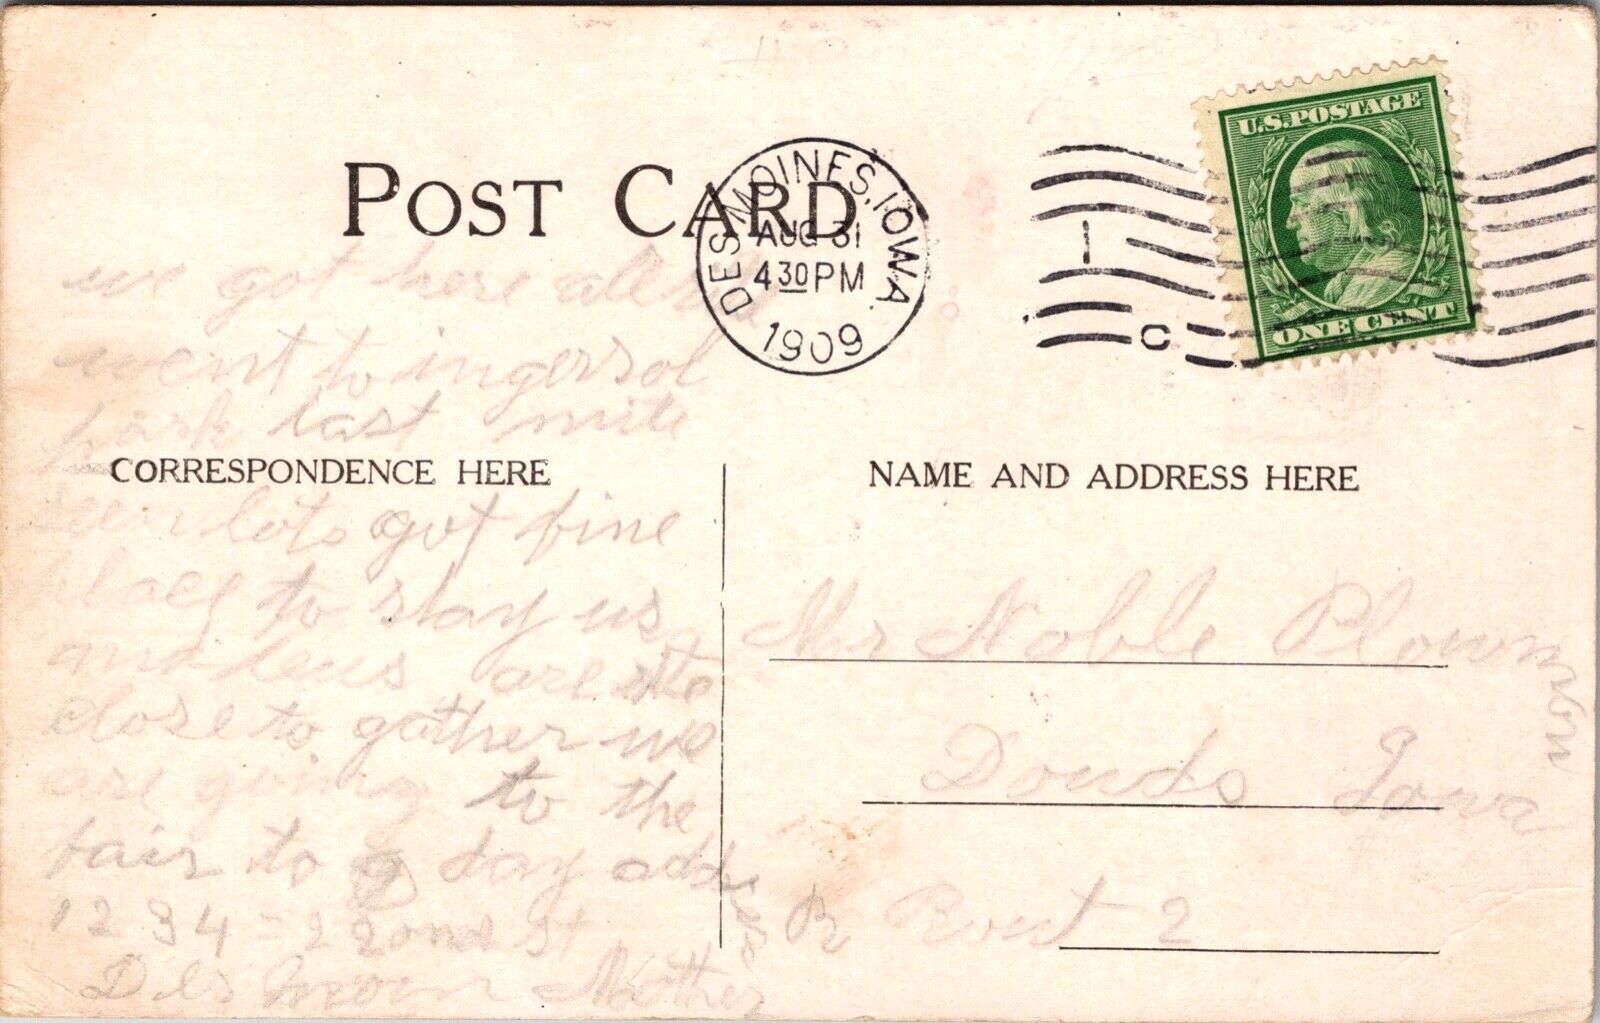 POST CARD
DES MOINES, IOWA.
AUG 31
4 30 PM
1909
1
C
U.S. POSTAGE
ONE CENT
we got here all
went to ingersol
park last nite
CORRESPONDENCE HERE
seen lots got fine
place to stay us
and are
close to gather we
are going to the
fair to day address
1234 = 22 ond st
Des moin Mother
NAME AND ADDRESS HERE
Mr Noble Plowman
Douds Iowa
R Rout 2